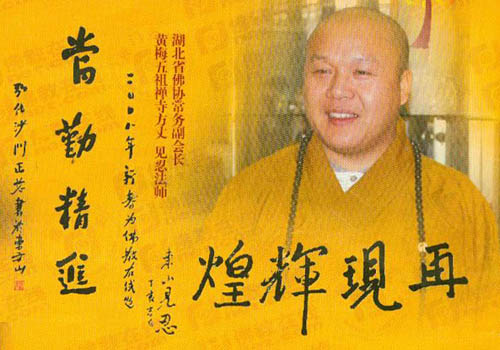 湖北省佛协常务副会长
黄梅五祖禅寺方丈 见忍法师
再現輝煌
二〇〇八年新春为佛教在线题
東山見忍
當勤精進
弘化沙门正慈書於東方山